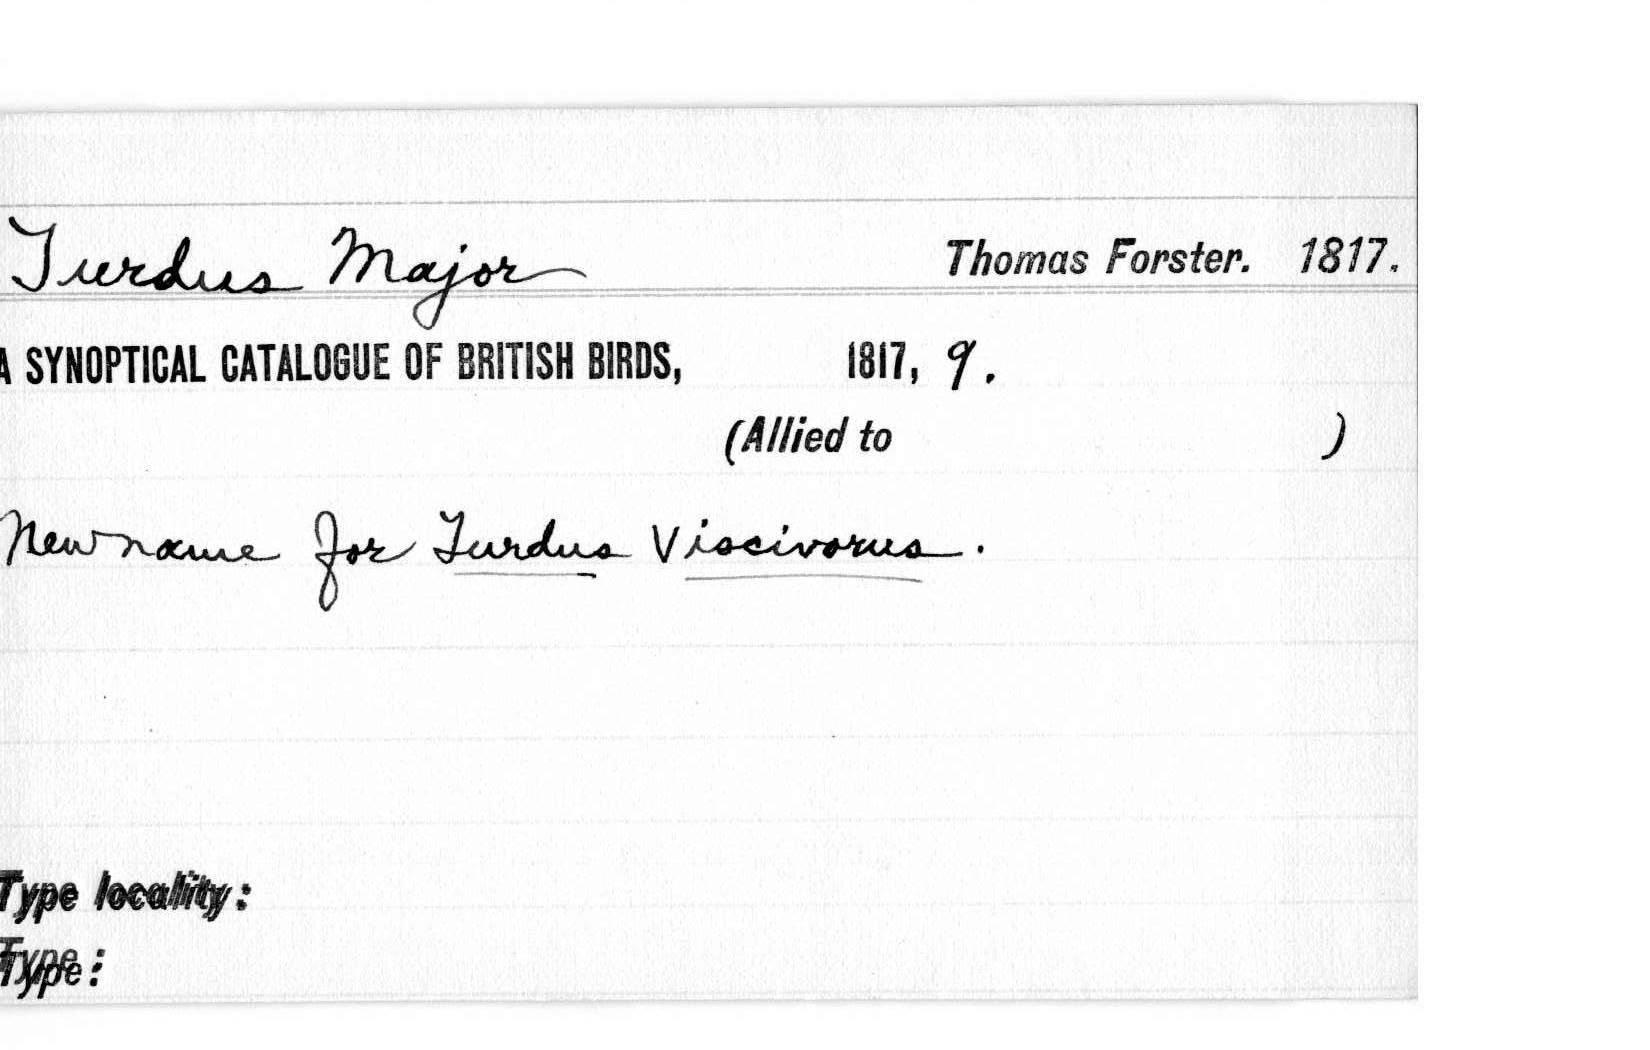 Turdus Major Thomas Forster. 1817.
A SYNOPTICAL CATALOGUE OF BRITISH BIRDS, 1817, 9.
(Allied to )
New name for Turdus Viscivorus.
Type locality:
Type: